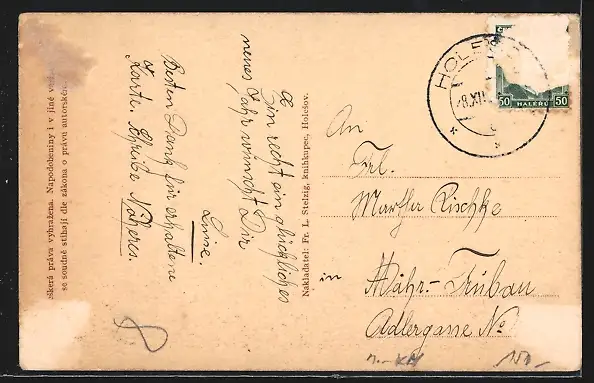 Ein recht ein glückliches
neues Jahr wünscht Dir
Luise.
Besten Dank für erhaltene
Karte. Schreibe Näheres.
Veškerá práva vyhražena. Napodobeniny i v jiné
se soudně stíhají dle zákona o právu autorském.
Nakladatel: Fr. L. Stelzig, knihkupec, Holešov.
HOLE
28.XII
50 HALÉŘŮ 50
An
Frl.
Martha Rischke
in
Mähr.-Trübau
Adlergasse No
150.-